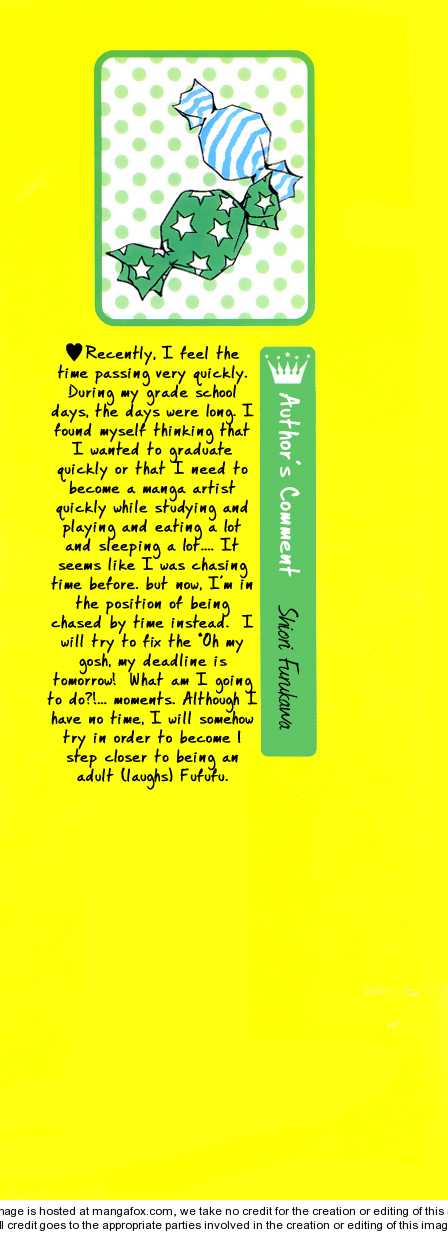 ♥Recently, I feel the
time passing very quickly.
During my grade school
days, the days were long. I
found myself thinking that
I wanted to graduate
quickly or that I need to
become a manga artist
quickly while studying and
playing and eating a lot
and sleeping a lot.... It
seems like I was chasing
time before. but now, I'm in
the position of being
chased by time instead. I
will try to fix the "Oh my
gosh, my deadline is
tomorrow! What am I going
to do?!... moments. Although I
have no time, I will somehow
try in order to become 1
step closer to being an
adult (laughs) Fufufu.
Author's Comment Shiori Furukawa
mage is hosted at mangafox.com, we take no credit for the creation or editing of this
ll credit goes to the appropriate parties involved in the creation or editing of this imag